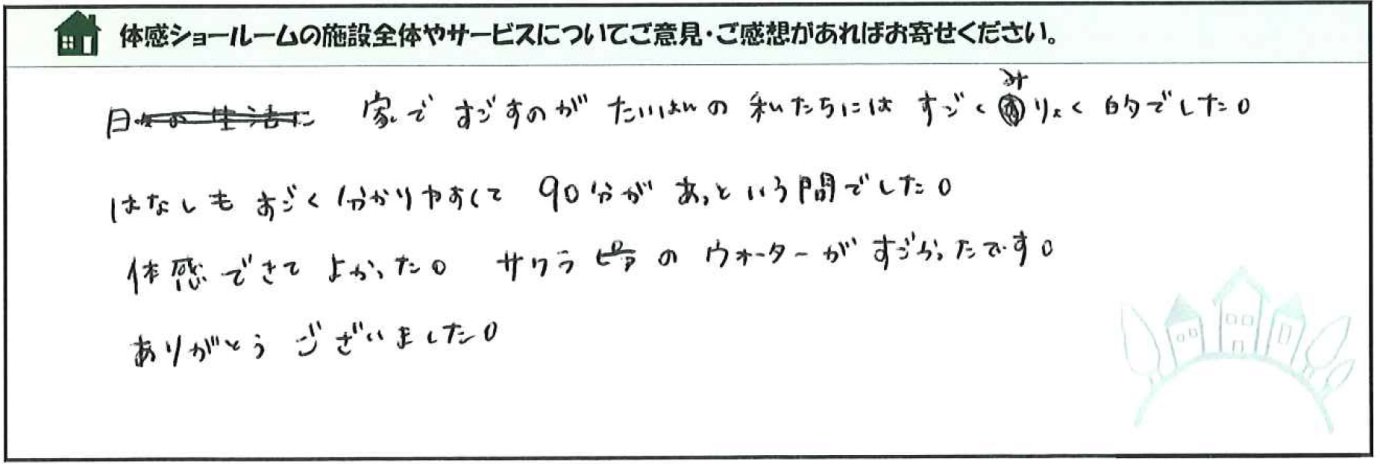 体感ショールームの施設全体やサービスについてご意見・ご感想があればお寄せください。
日々の生活に 家ですごすのが たいはんの 私たちには すごく みりょく的でした。
はなしも すごく分かりやすくて 90分が あっという間でした。
体感できて よかった。 サクラ の ウォーターが すごかったです。
ありがとう ございました。